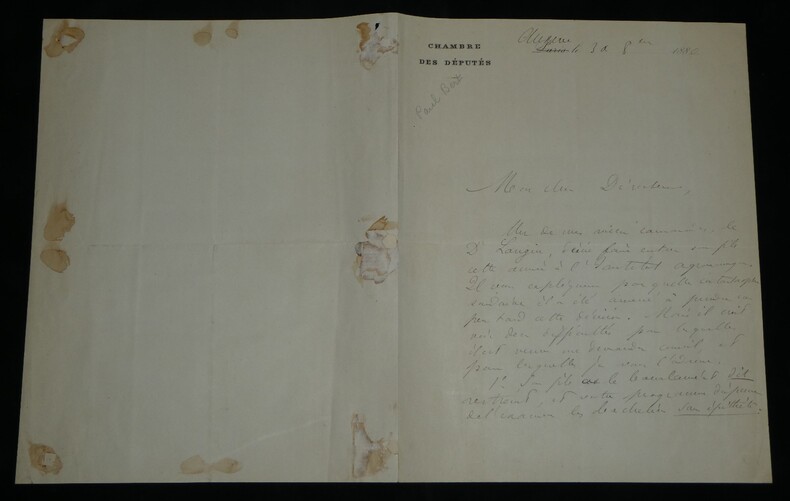 CHAMBRE
DES DÉPUTÉS
Auxerre
Paris le 30 8bre
Paul Bert
Mon cher Directeur,
Un de mes vieux camarades, le
Dr Langin, désire faire entrer son fils
cette année à l'Institut agronomique.
Il vous expliquera par quelle
il a été amené à prendre un
peu tard cette décision. - Mais il croit
avoir des difficultés pour lesquelles
il est venu me demander conseil et
pour lesquelles je vous
1° Son fils a le baccalauréat dit
restreint, et votre programme dispense
de l'examen les bacheliers sans épithète,